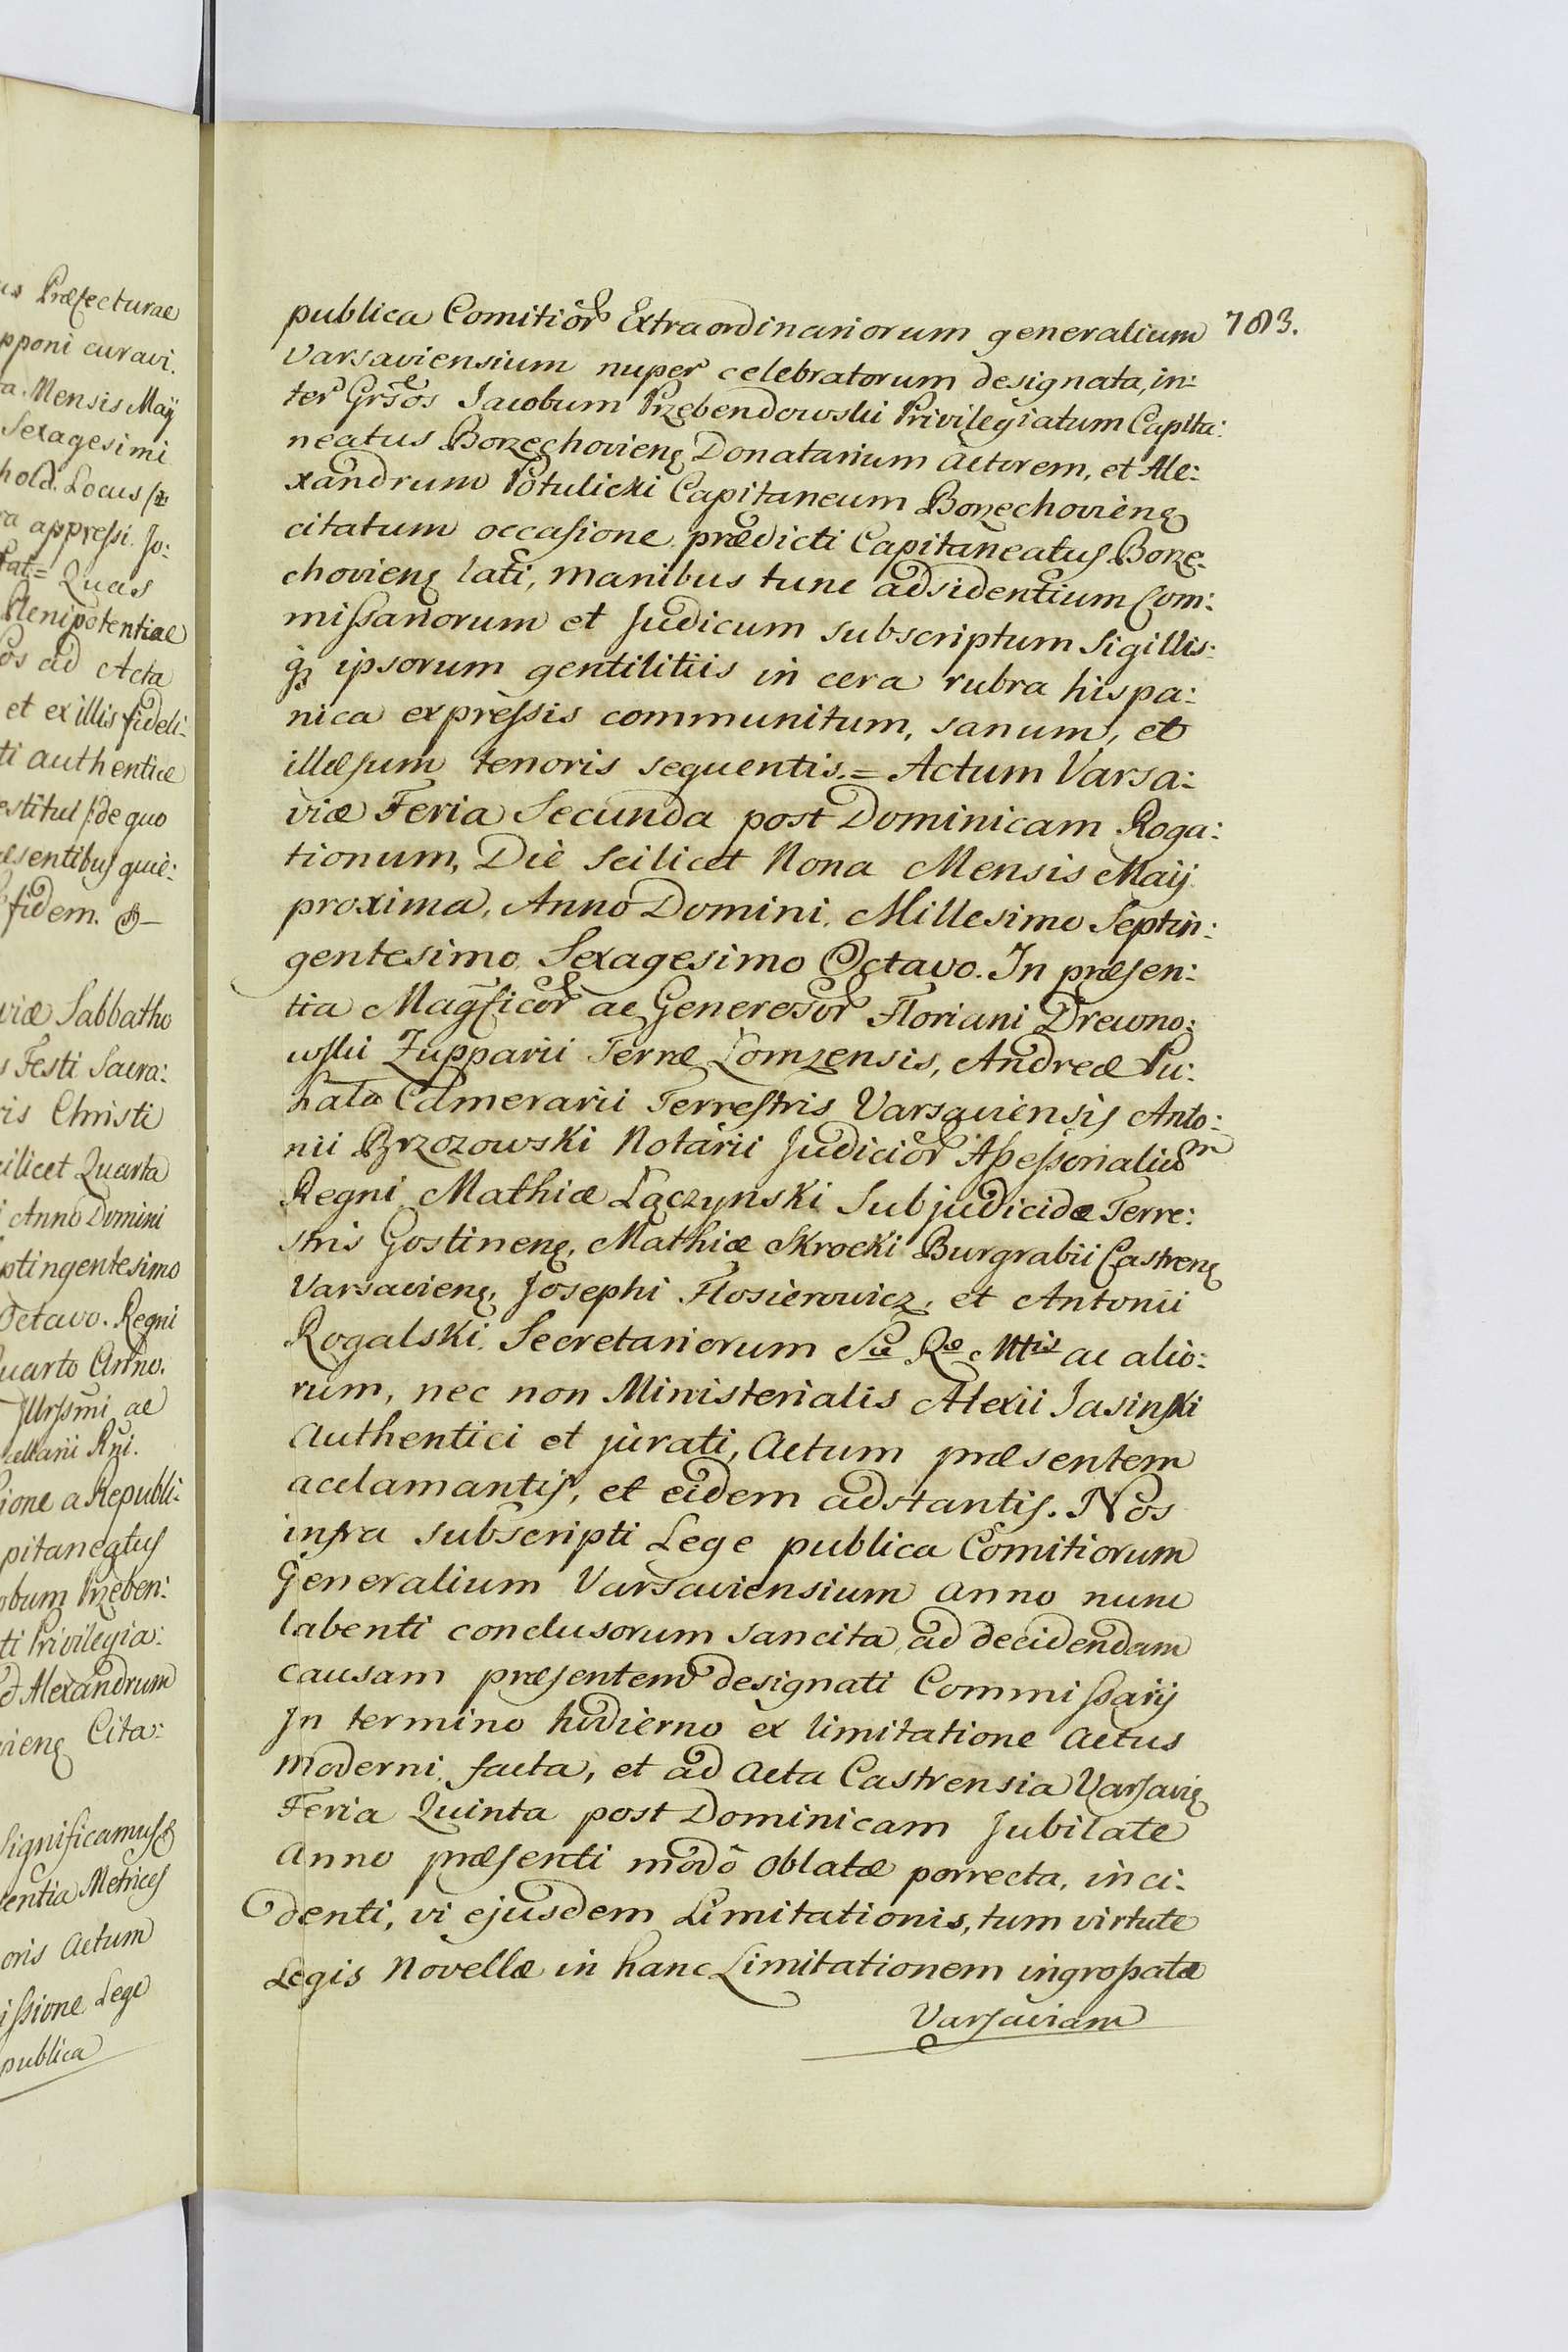 us Præfecturae
pponi curavi.
a Mensis Maij
Sexagesimi
hold. Locus
ra appressi. Jo:
Pat= Quas
Plenipotentiae
os ad Acta
et ex illis fideli:
ti authentice
estitui /: de quo
æsentibus quie:
fidem. &-
viæ Sabbatho
s Festi Sacra:
ris Christi
cilicet Quarta
i Anno Domini
ptingentesimo
Octavo. Regni
uarto Anno.
Jllrssmi ac
cellarii Rni.
ione a Republi:
pitaneatus
obum Przeben:
ti Privilegia:
et Alexandrum
vieng Cita:
Significamus
entia Metrices
oris Actum
issione Lege
publica
publica Comitior Extraordinariorum generalium 783.
Varsaviensium nuper celebratorum designata, in:
ter Grsos Jacobum Przebendowski Privilegiatum Capita:
neatus Borzechovieng Donatarium Actorem, et Ale:
xandrum Potulicki Capitaneum Borzechovieng
citatum occasione prædicti Capitaneatus Borze:
chovieng lati, manibus tunc adsidentium Com:
missariorum et Judicum subscriptum Sigillis:
q3 ipsorum gentilitiis in cera rubra hispa:
nica expressis communitum, sanum, et
illæsum tenoris sequentis.= Actum Varsa:
viæ Feria Secunda post Dominicam Roga:
tionum, Die scilicet Nona Mensis Maij
proxima, Anno Domini Millesimo Septin:
gentesimo Sexagesimo Octavo. In præsen:
tia Magficor ac Generosor Floriani Drewno:
wski Zupparii Terræ Lomzensis, Andreæ Pu:
hata Camerarii Terrestris Varsaviensis Anto:
nii Brzozowski Notarii Judicior Assessorialium
Regni Mathiæ Łączynski Subjudicidæ Terre:
stris Gostineng, Mathiæ Skrocki Burgrabii Castreng
Varsavieng, Josephi Flosierowicz, et Antonii
Rogalski Secretariorum Sæ Ræ Mttis ac alio:
rum, nec non Ministerialis Alexii Jasinski
Authentici et jurati, Actum præsentem
acclamantis, et eidem adstantis. Nos
infra subscripti Lege publica Comitiorum
Generalium Varsaviensium anno nunc
labenti conclusorum sancita ad decidendam
causam præsentem designati Commissarij
In termino hodierno ex limitatione Actus
moderni facta, et ad Acta Castrensia Varsavieg
Feria Quinta post Dominicam Jubilate
anno præsenti modô Oblatæ porrecta, inci:
denti, vi ejusdem Limitationis, tum virtute
Legis Novellæ in hanc Limitationem ingrossatæ
Varsaviam